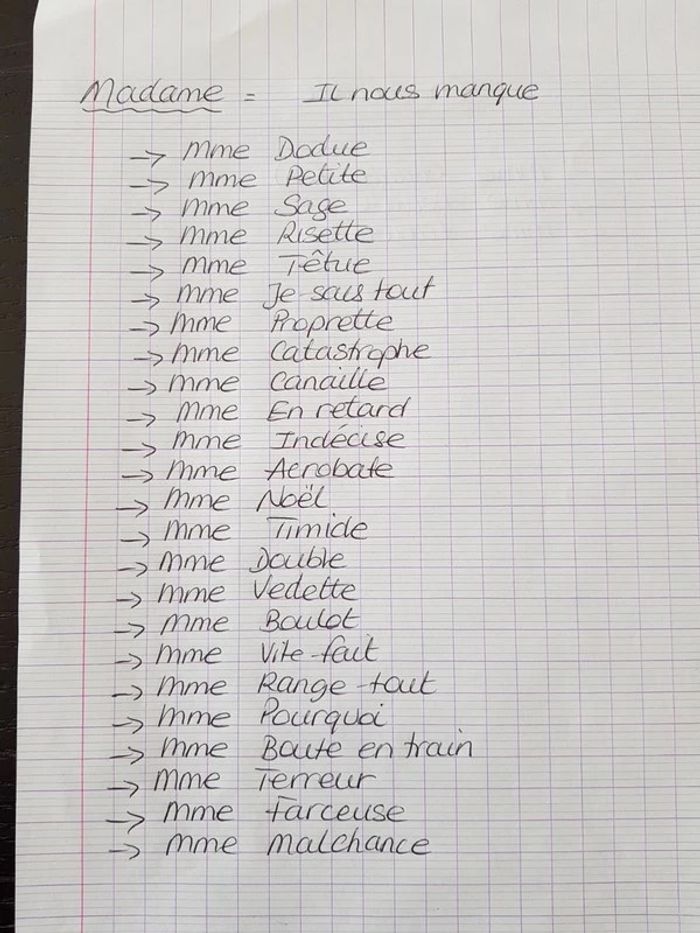 Madame = Il nous manque
→ Mme Dodue
→ Mme Petite
→ Mme Sage
→ Mme Risette
→ Mme Têtue
→ Mme Je sais tout
→ Mme Proprette
→ Mme Catastrophe
→ Mme Canaille
→ Mme En retard
→ Mme Indécise
→ Mme Acrobate
→ Mme Noël
→ Mme Timide
→ Mme Double
→ Mme Vedette
→ Mme Boulot
→ Mme Vite-fait
→ Mme Range-tout
→ Mme Pourquoi
→ Mme Boute en train
→ Mme Terreur
→ Mme Farceuse
→ Mme Malchance